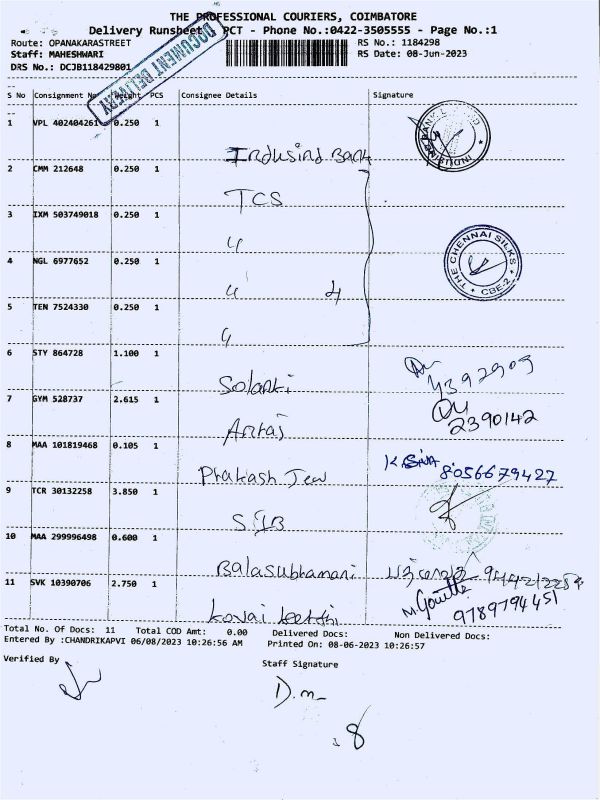 THE PROFESSIONAL COURIERS, COIMBATORE
Delivery Runsheet PCT - Phone No.:0422-3505555 - Page No.:1
Route: OPANAKARASTREET RS No.: 1184298
Staff: MAHESHWARI RS Date: 08-Jun-2023
DRS No.: DCJB118429801
DOCUMENT DELIVERY
S No Consignment No Weight PCS Consignee Details Signature
1 VPL 402404261 0.250 1
Indusind Bank
2 CMM 212648 0.250 1
TCS
3 IXM 503749018 0.250 1
4
THE CHENNAI SILKS
CBE-2
4 NGL 6977652 0.250 1
4 4
5 TEN 7524330 0.250 1
4
6 STY 864728 1.100 1
Solanki
7 GYM 528737 2.615 1
2390142
8 MAA 101819468 0.105 1
K. SIVA 8056679427
Prakash Jew
9 TCR 30132258 3.850 1
SIB
10 MAA 299996498 0.600 1
Balasubramani
11 SVK 10390706 2.750 1
9789794451
Kovai
Total No. Of Docs: 11 Total COD Amt: 0.00 Delivered Docs: Non Delivered Docs:
Entered By :CHANDRIKAPVI 06/08/2023 10:26:56 AM Printed On: 08-06-2023 10:26:57
Verified By Staff Signature
D.m
8